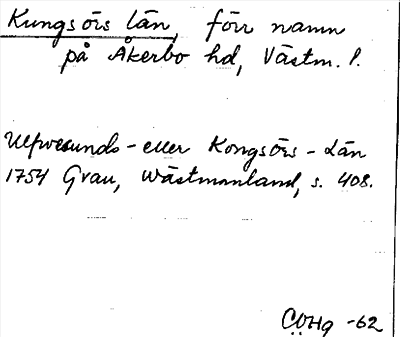 Kungsörs län, förr namn
på Åkerbo hd, Västm. l.
Ulfvesunds- eller Kongsörs-Län
1754 Grau, Wästmanland, s. 408.
CÖHg -62